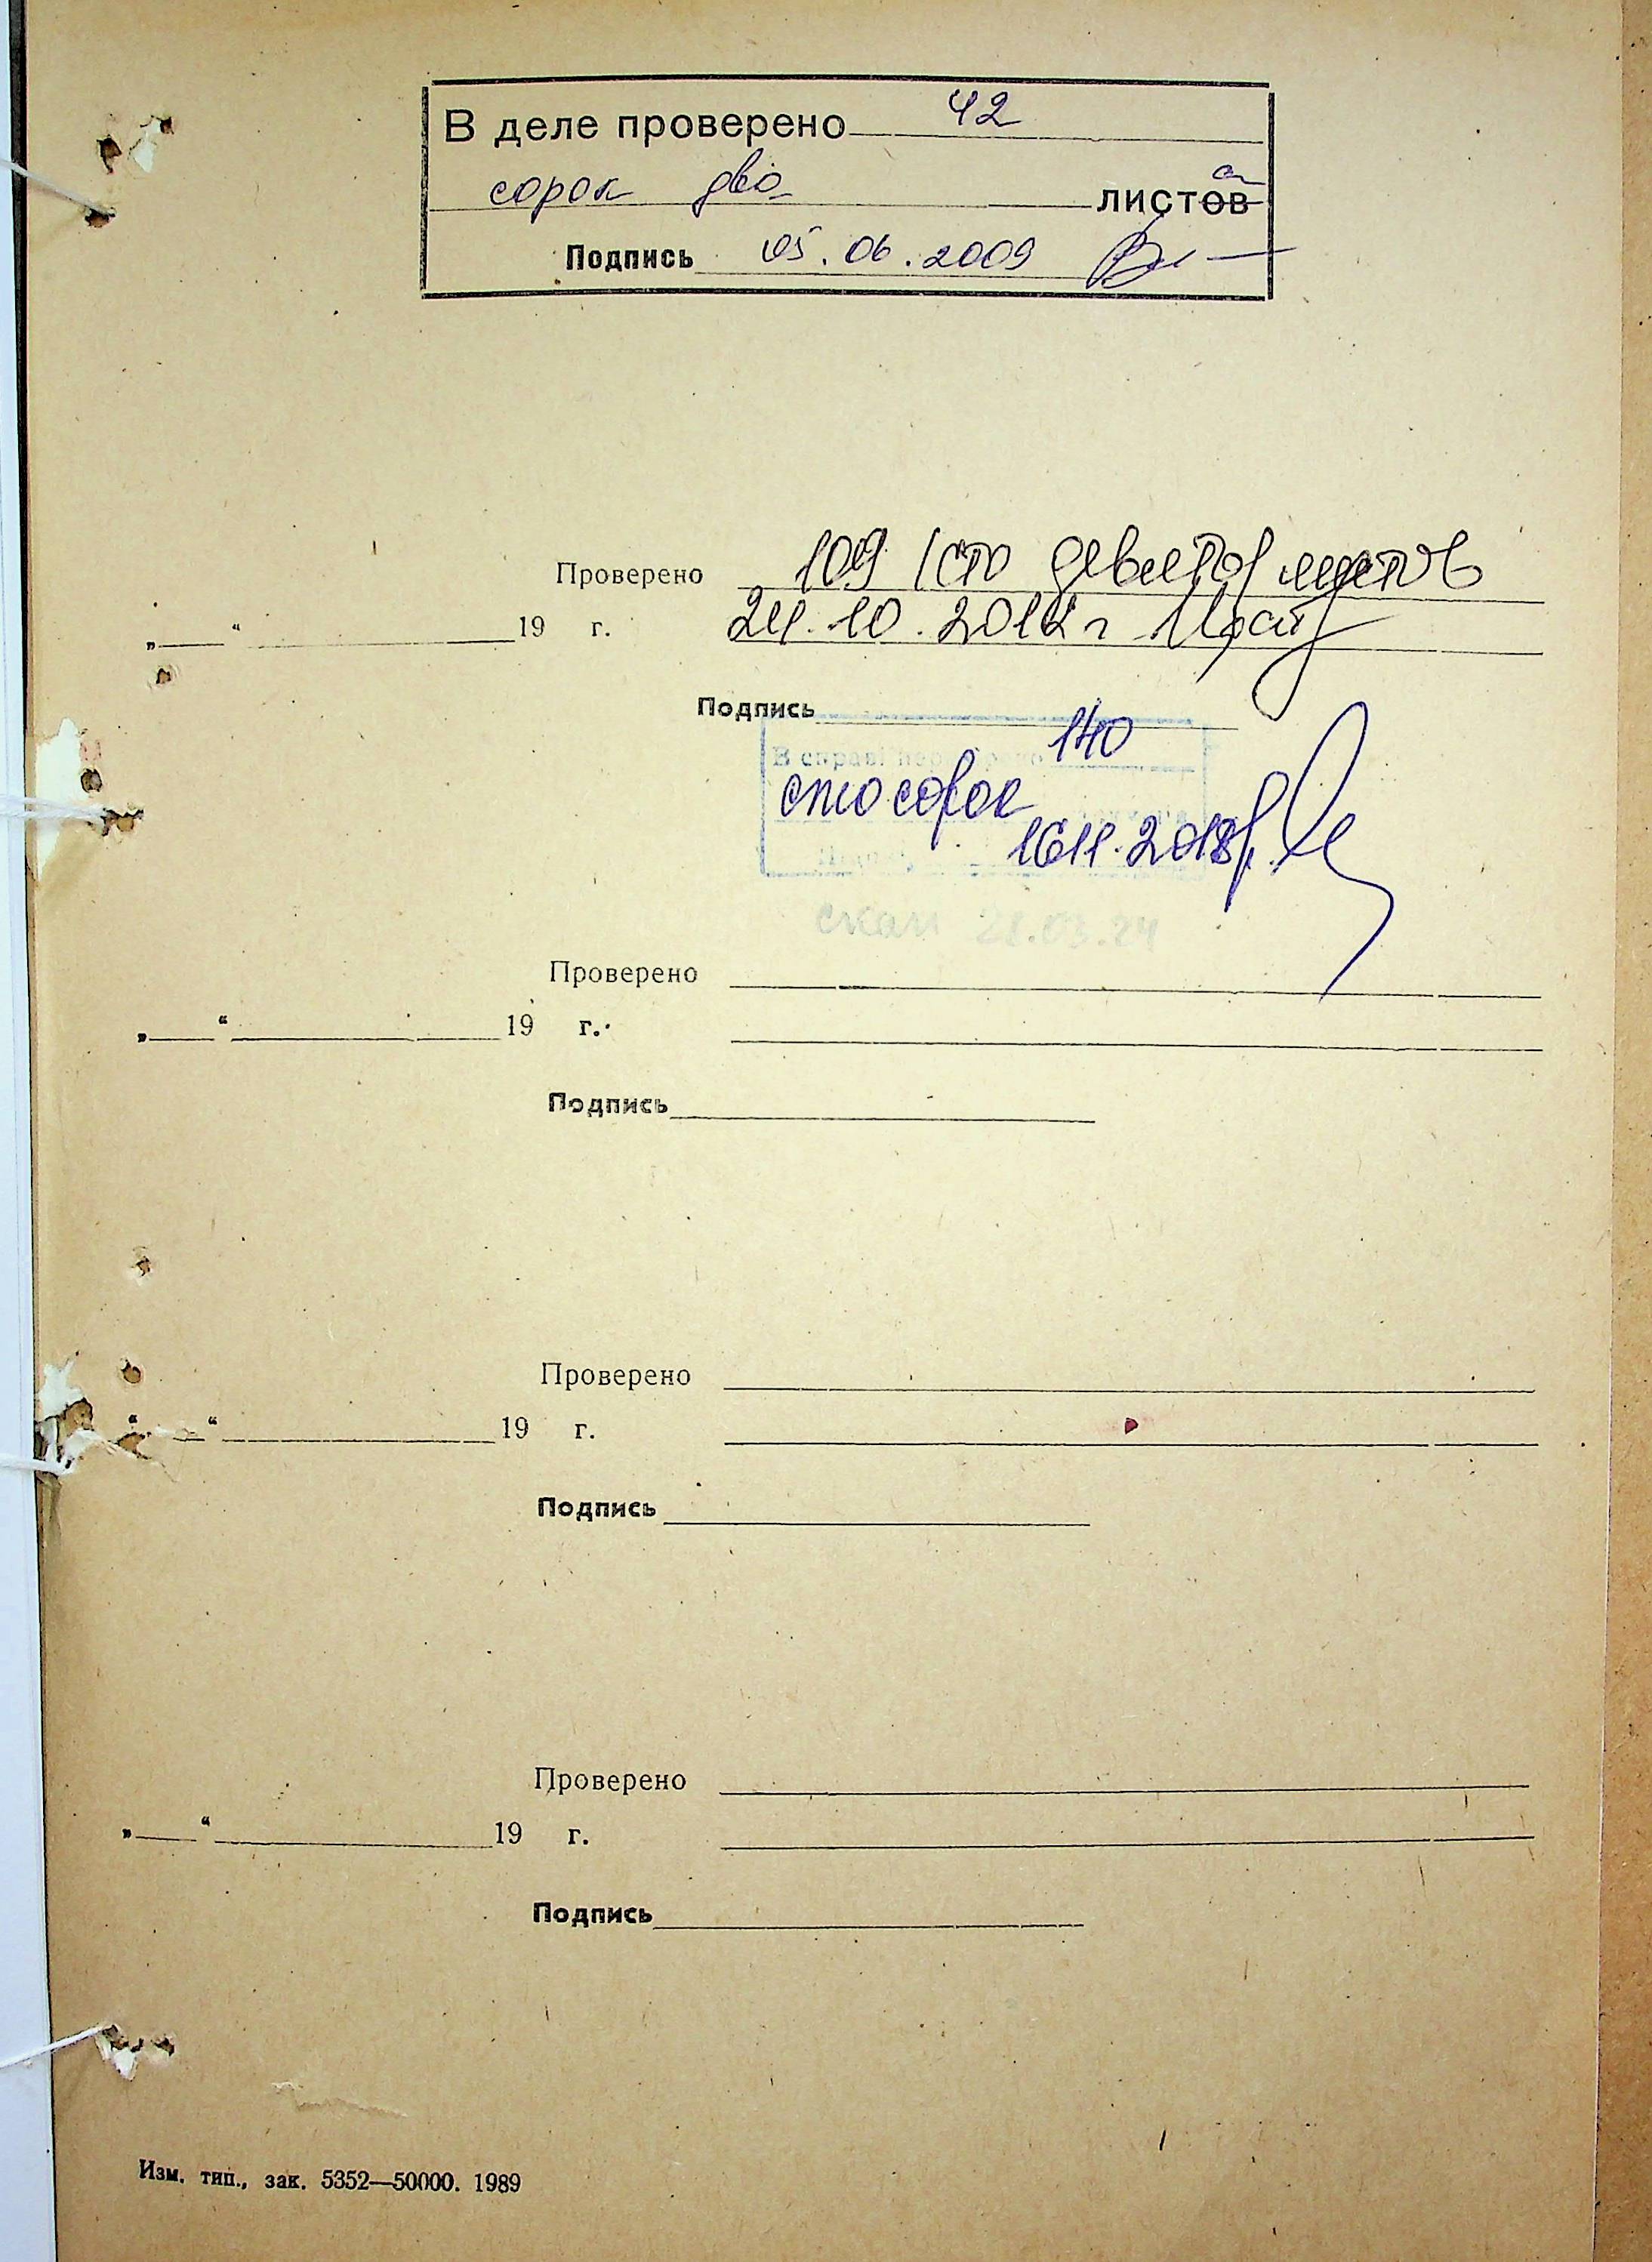 В деле проверено 42
сорок два листов а
Подпись 05.06.2009
Проверено 109 (сто девять) листов
„ “ 19 г. 24.10.2012 г
Подпись
В справі 140
сто сорок
16.11.2018р.
скан 28.03.24
Проверено
„ “ 19 г.
Подпись
Проверено
„ “ 19 г.
Подпись
Проверено
„ “ 19 г.
Подпись
Изм. тип., зак. 5352—50000. 1989